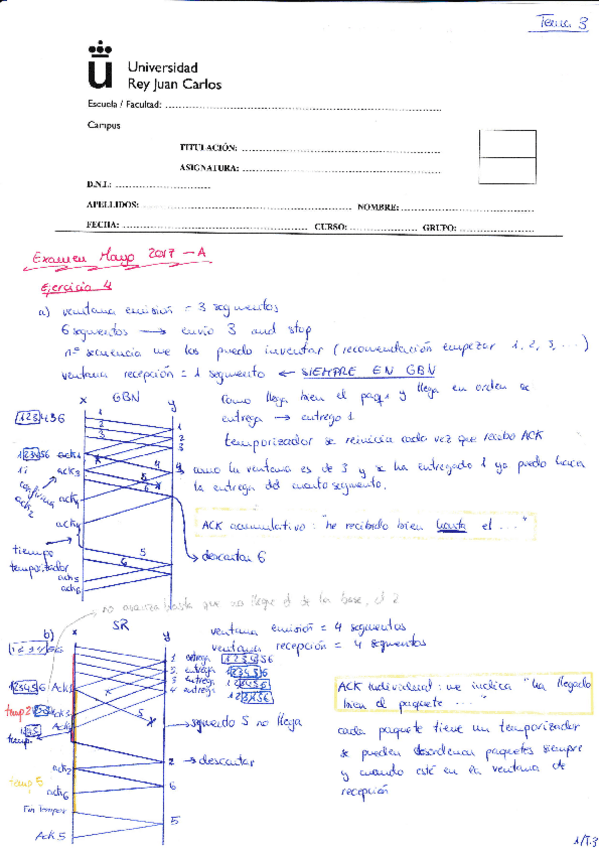 Tema 3
Universidad
Rey Juan Carlos
Escuela / Facultad:
Campus
TITULACIÓN:
ASIGNATURA:
D.N.I.:
APELLIDOS: NOMBRE:
FECHA: CURSO: GRUPO:
Examen Mayo 2017 - A
Ejercicio 4
a) ventana emisión = 3 segmentos
6 segmentos → envío 3 and stop
nº secuencia me los puedo inventar (recomendación empezar 1, 2, 3, ...)
ventana recepción = 1 segmento ← SIEMPRE EN GBN
x GBN y
como llega bien el paq 1 y llega en orden se
entrega → entrego 1
temporizador se reinicia cada vez que recibo ACK
123456
1
2
3
1
2
3
123456 ack1
ack3
4
como la ventana es de 3 y se ha entregado 1 ya puedo hacer
la entrega del cuarto segmento.
confirma
ack2
ack4
ack4
ACK acumulativo: "he recibido bien hasta el ..."
→ descartar 6
tiempo
temporizador
5
6
ack5
ack6
no avanza hasta que no llegue el de la base, el 2
b) x SR y
ventana emisión = 4 segmentos
ventana recepción = 4 segmentos
123456
1 entrega 123456
2 entrega 123456
3 entrega
4 entrega
123456 Ack1
temp 2
Ack3
temp.
→ segmento 5 no llega
ACK individual: me indica "ha llegado
bien el paquete ...."
cada paquete tiene un temporizador
se pueden desordenar paquetes siempre
y cuando esté en la ventana de
recepción
ack2
2 → descartar
temp 5
ack6
6
Fin tempor
5
Ack 5
1/T.3